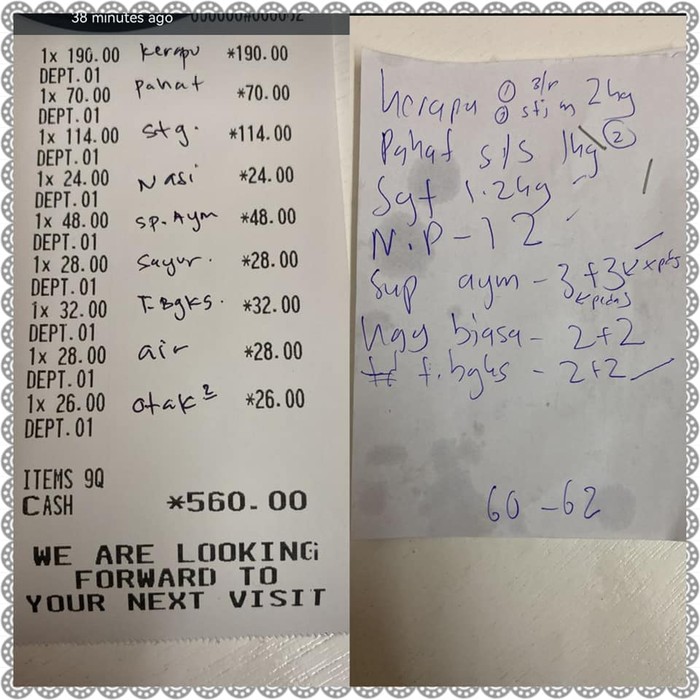 38 minutes ago
1x 190.00 kerapu *190.00
DEPT.01
1x 70.00 pahat *70.00
DEPT.01
1x 114.00 stg. *114.00
DEPT.01
1x 24.00 Nasi *24.00
DEPT.01
1x 48.00 sp. Aym *48.00
DEPT.01
1x 28.00 Sayur. *28.00
DEPT.01
1x 32.00 T. Bgks. *32.00
DEPT.01
1x 28.00 air *28.00
DEPT.01
1x 26.00 otak² *26.00
DEPT.01
ITEMS 9Q
CASH *560.00
WE ARE LOOKING
FORWARD TO
YOUR NEXT VISIT
kerapu ① 3/r
② stim 2kg
Pahat s/s 1kg ②
Sgt 1.2kg
N.P - 12
Sup aym - 3+3 k xpds
k pds
biasa - 2+2
t. bgks - 2+2
60 - 62